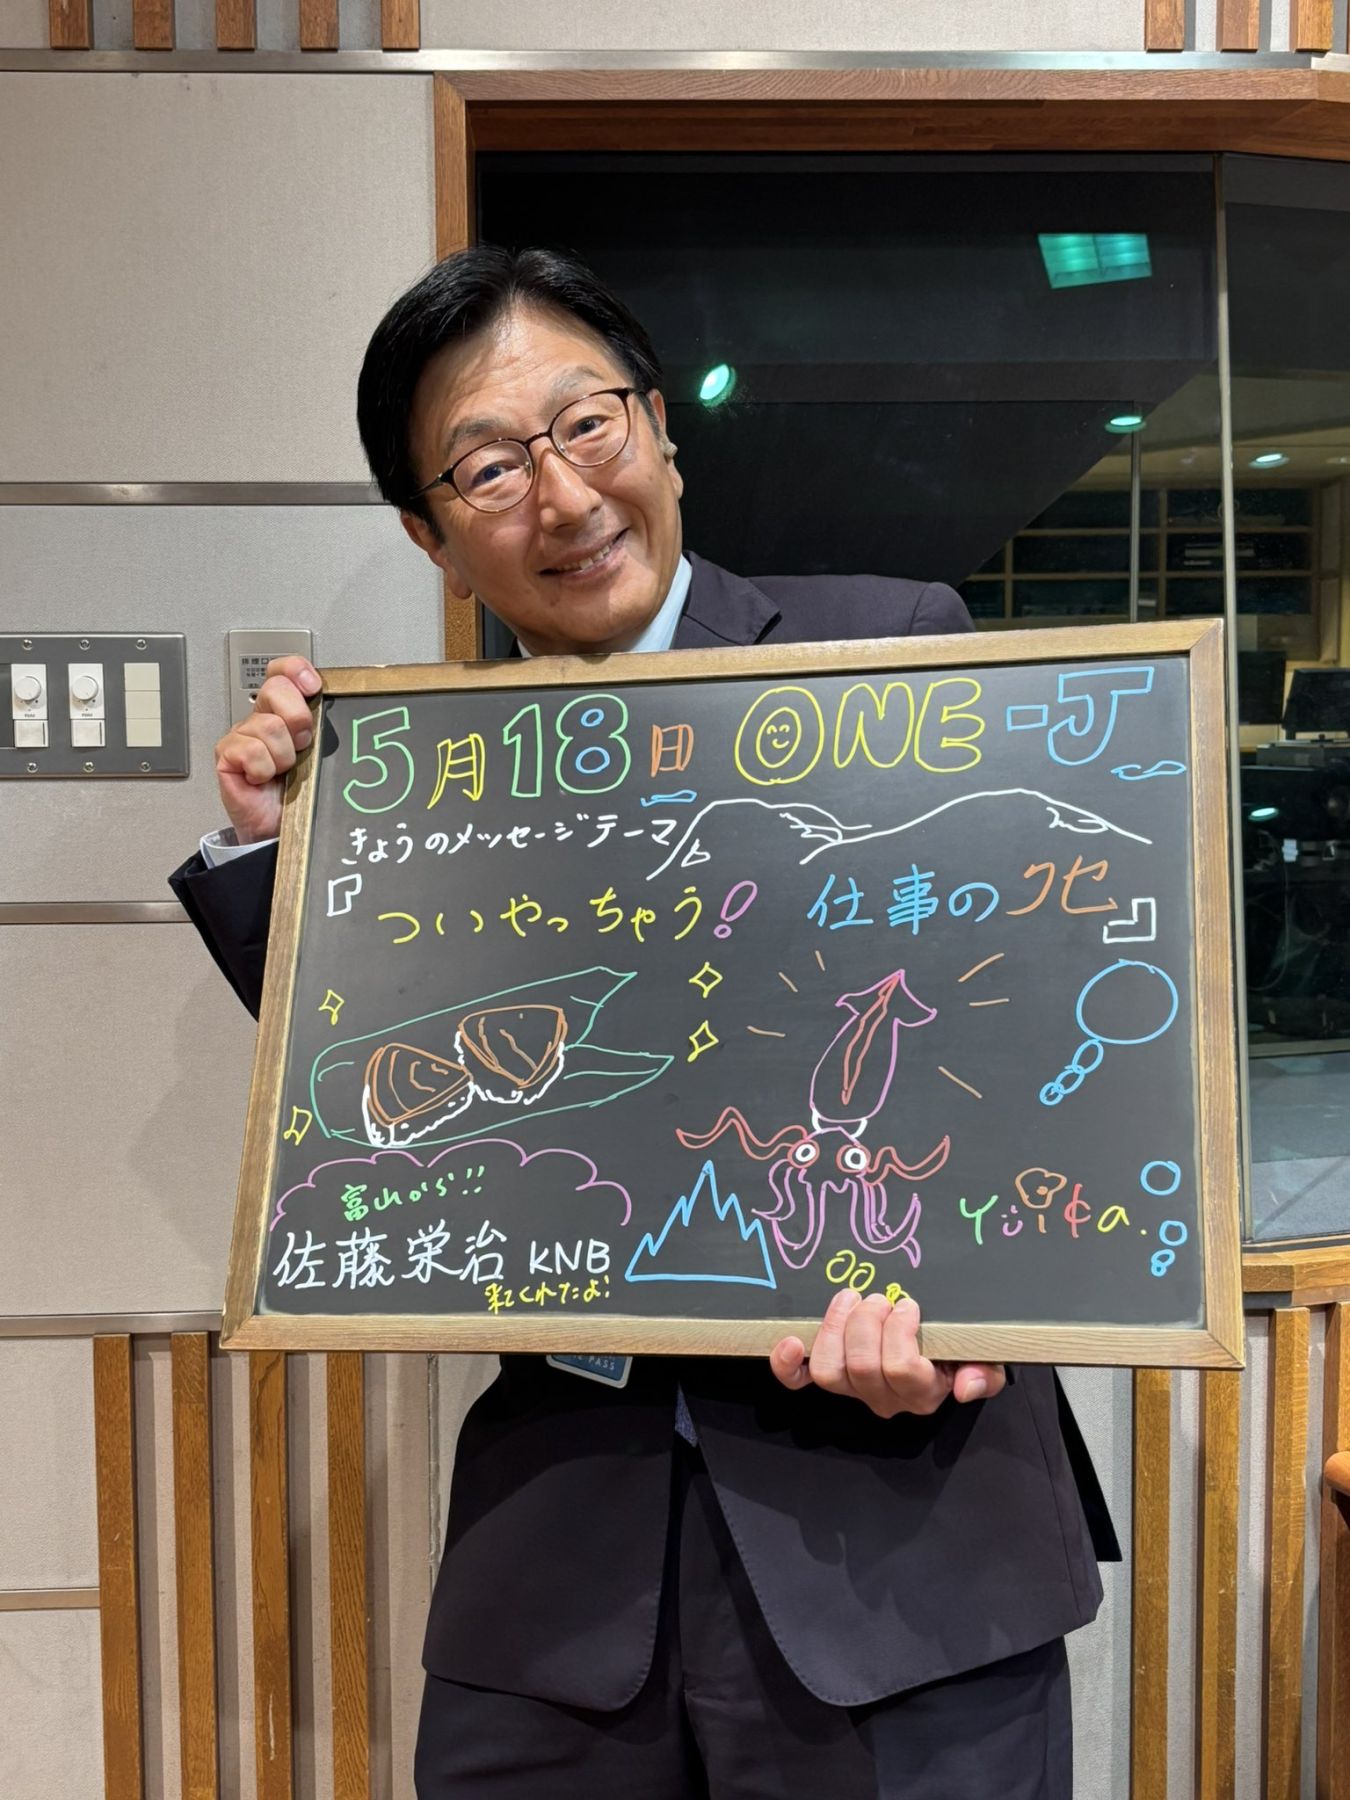 5月18日 ONE-J
きょうのメッセージテーマ
『ついやっちゃう! 仕事のクセ』
富山から!!
佐藤栄治 KNB
来てくれたよ!
Yüika.
PASS